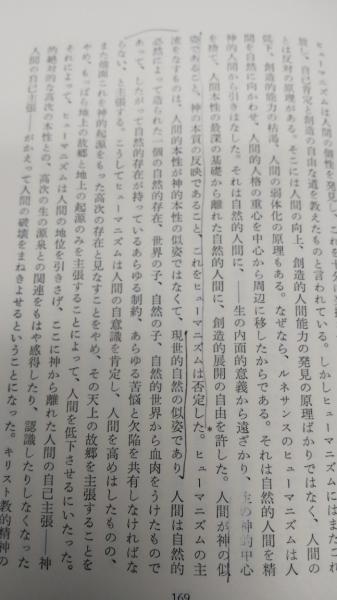 ヒューマニズムは人間の個性を発見し、これを
放し、自己肯定と創造の自由な道を教えたものと言われている。しかしヒューマニズムにはまたこれ
とは反対の原理がある。そこには人間の向上、創造的人間能力の発見の原理ばかりではなく、人間の
低下、創造的能力の枯渇、人間の弱体化の原理もある。なぜなら、ルネサンスのヒューマニズムは人
間を自然に向かわせ、人間的人格の重心を中心から周辺に移したからである。それは自然的人間を精
神的人間から引きはなした。それは自然的人間に、――生の内面的意義から遠ざかり、生の神的中心
を捨て、人間本性の最深の基礎から離れた自然的人間に、創造的展開の自由を許した。人間が神の似
姿であること、神の本質の反映であること、これをヒューマニズムは否定した。ヒューマニズムの主
流をなすものは、人間的本性が神的本性の似姿ではなくて、現世的自然の似姿であり、人間は自然的
必然によって造られた一個の自然的存在、世界の子、自然の子、自然的世界から血肉をうけたもので
あって、したがって自然的存在が持っているあらゆる制約、あらゆる苦悩と欠陥を共有しなければな
らない、と主張する。こうしてヒューマニズムは人間の自意識を肯定し、人間を高めはしたものの、
また他面これを神的起源をもった高次の存在と見なすことをやめ、その天上の故郷を主張することを
やめ、もっぱら地上の故郷と地上の起源のみを主張することによって、人間を低下させるにいたった。
それによって、ヒューマニズムは人間の地位を引きさげ、ここに神から離れた人間の自己主張――神
的絶対的な高次の本性との、高次の生の源泉との関連をもはや感得したり、認識したりしなくなった
人間の自己主張――がかえって人間の破壊をまねきよせるということになった。キリスト教的精神の
169